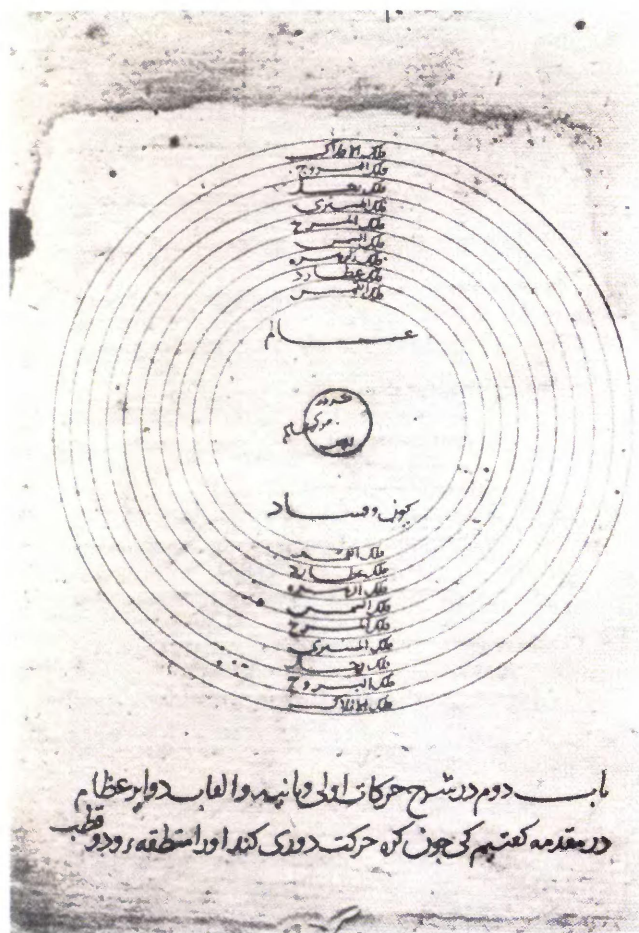 فلک الافلاک
فلک البروج
فلک زحل
فلک المشتری
فلک المریخ
فلک الشمس
فلک الزهره
فلک عطارد
فلک القمر
عالم
مرکز عالم
کون و فساد
فلک القمر
فلک عطارد
فلک الزهره
فلک الشمس
فلک المریخ
فلک المشتری
فلک زحل
فلک البروج
فلک الافلاک
باب دوم در شرح حرکات اولی و ثانیه و القاب دوایر عظام
در مقدمه گفتیم کی چون کره حرکت دوری کند اورا منطقه بود و دو قطب